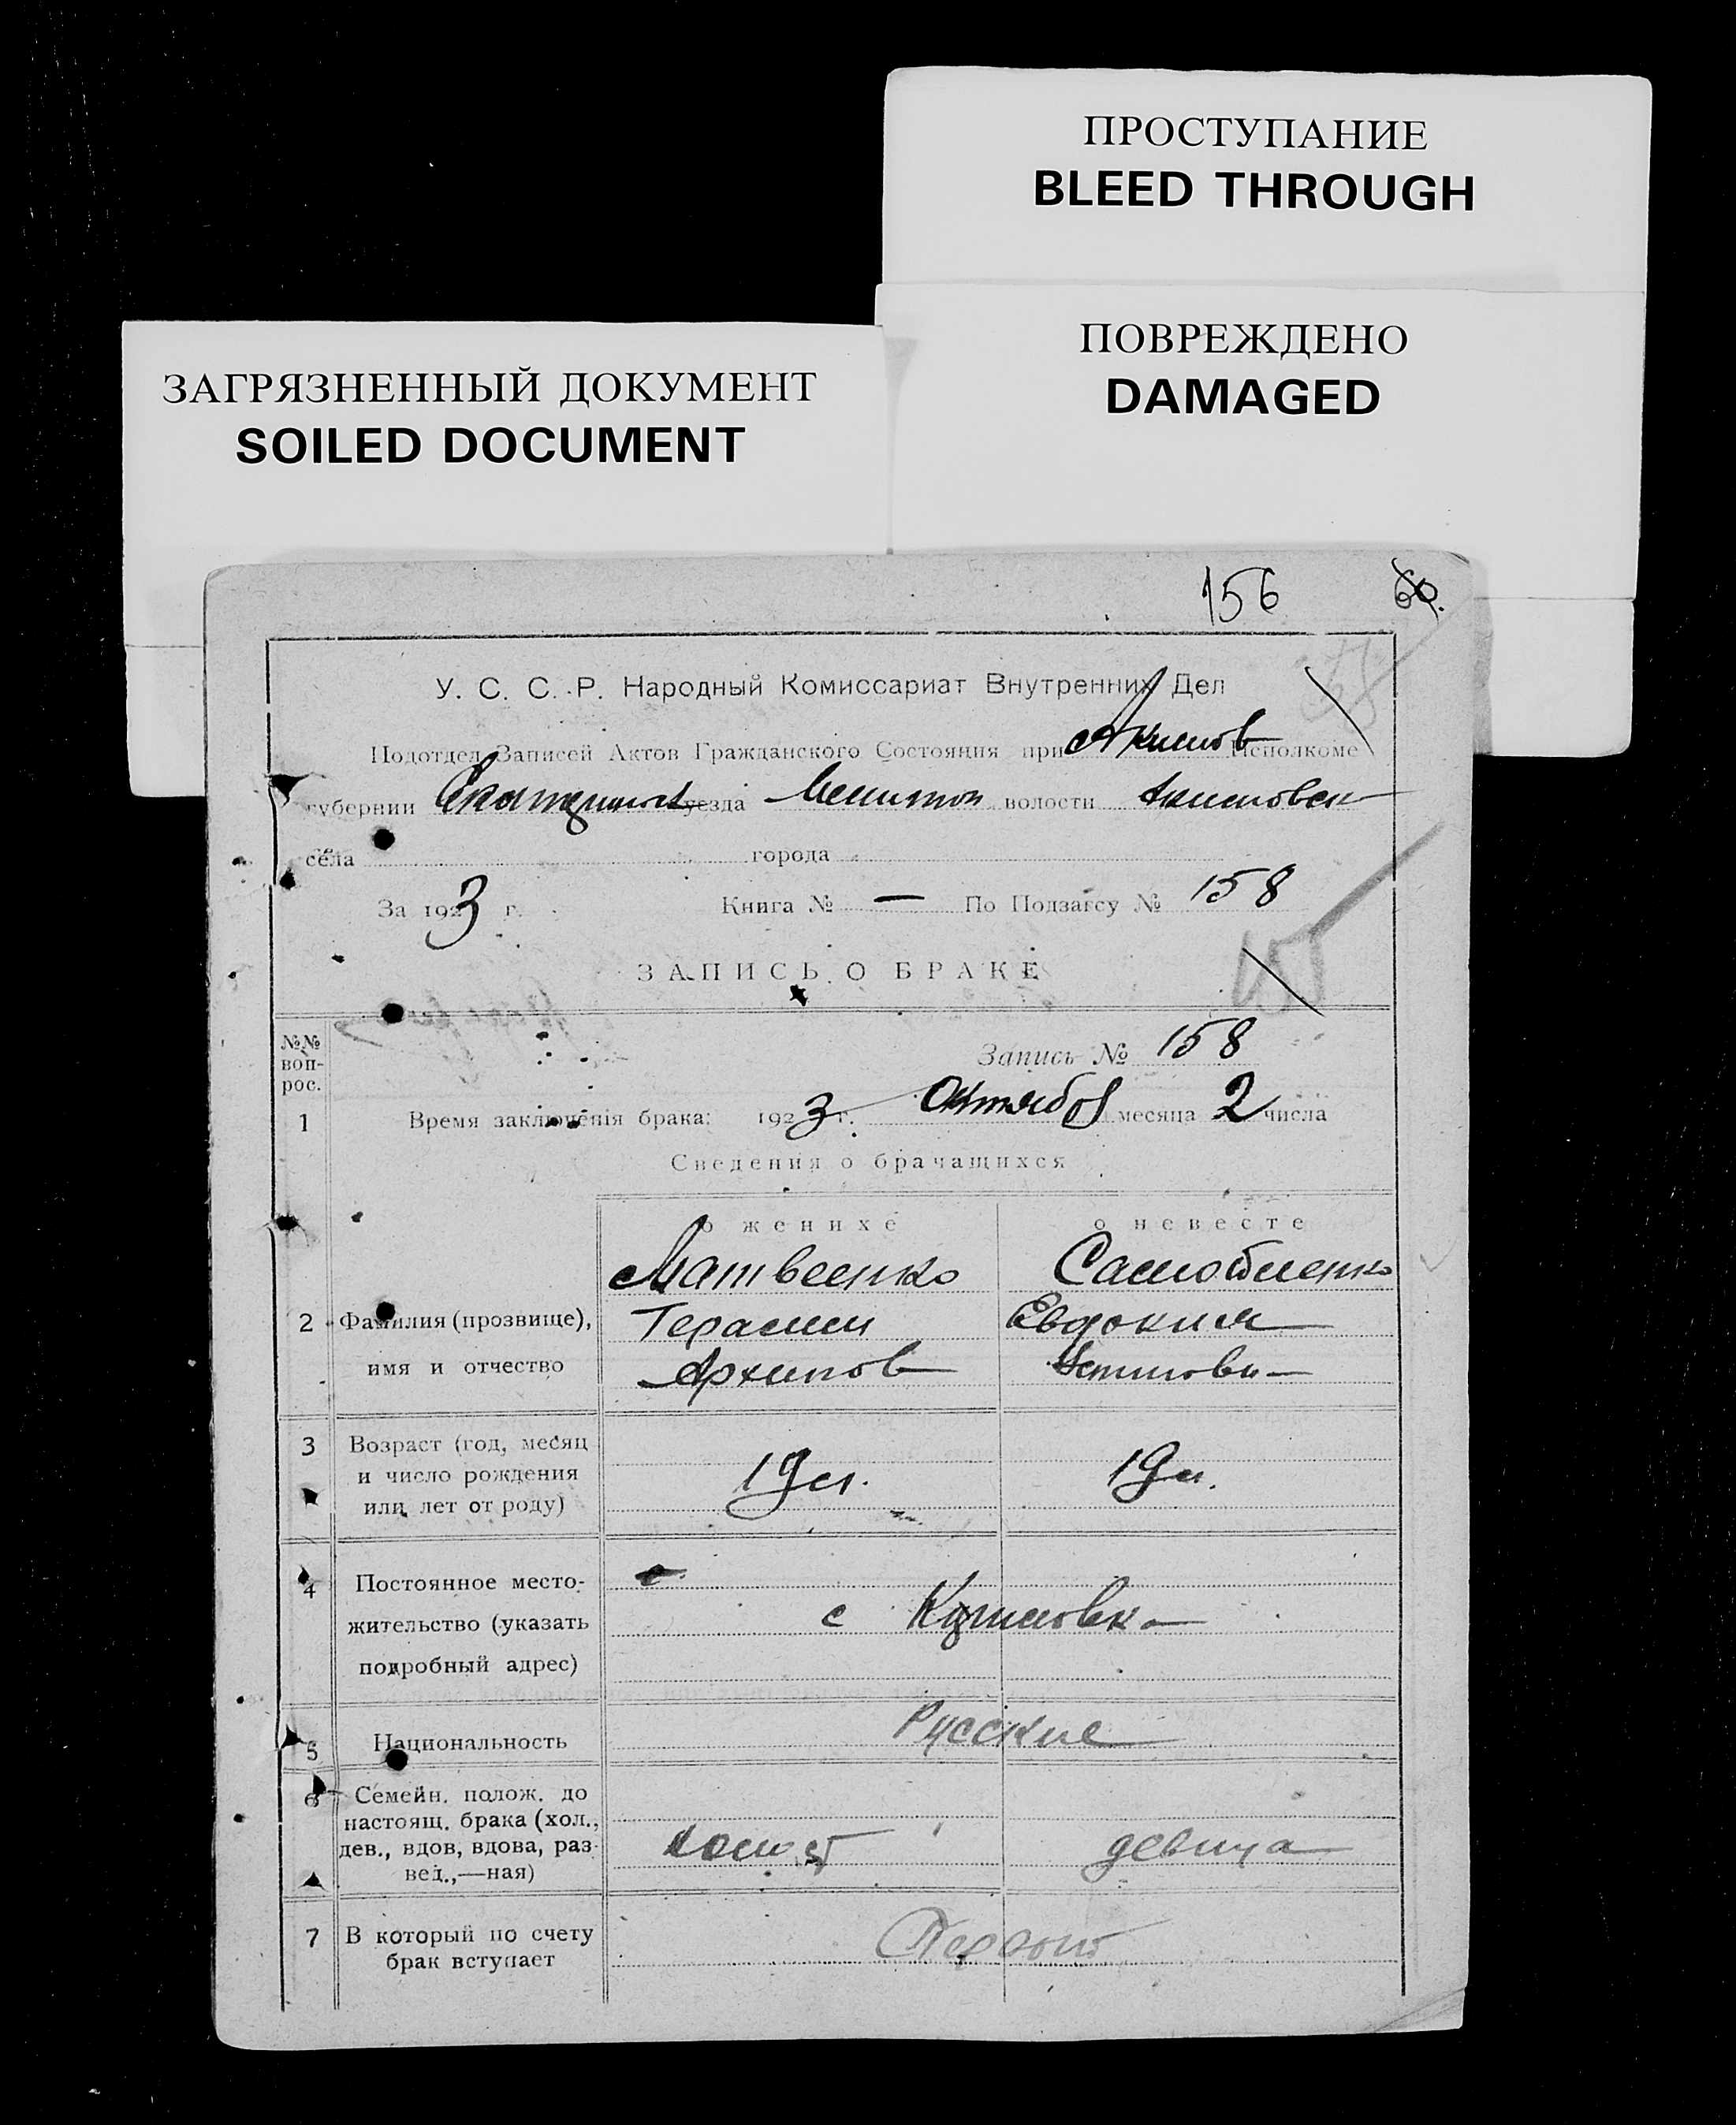 ПРОСТУПАНИЕ
BLEED THROUGH
ПОВРЕЖДЕНО
DAMAGED
ЗАГРЯЗНЕННЫЙ ДОКУМЕНТ
SOILED DOCUMENT
156 60.
У. С. С. Р. Народный Комиссариат Внутренних Дел
Подотдел Записей Актов Гражданского Состояния при Акимов Исполкоме
губернии Екатеринос уезда Мелитоп волости Акимовск
села города
За 1923 г. Книга № — По Подзагсу № 158
ЗАПИСЬ О БРАКЕ
№№ воп-
рос.
Запись № 158
1 Время заключенія брака: 1923 г. Октября месяца 2 числа
Сведения о брачащихся
о женихе о невесте
Матвеенко
2 Фамилия (прозвище), Герасим Евдокия
имя и отчество Архипов Устиновн
3 Возраст (год, месяц
и число рождения 19 л. 19 л.
или лет от роду)
4 Постоянное место-
жительство (указать с
подробный адрес)
5 Национальность Русские
6 Семейн. полож. до
настоящ. брака (хол.,
дев., вдов, вдова, раз- холост девица
вед.,—ная)
7 В который по счету Первый
брак вступает